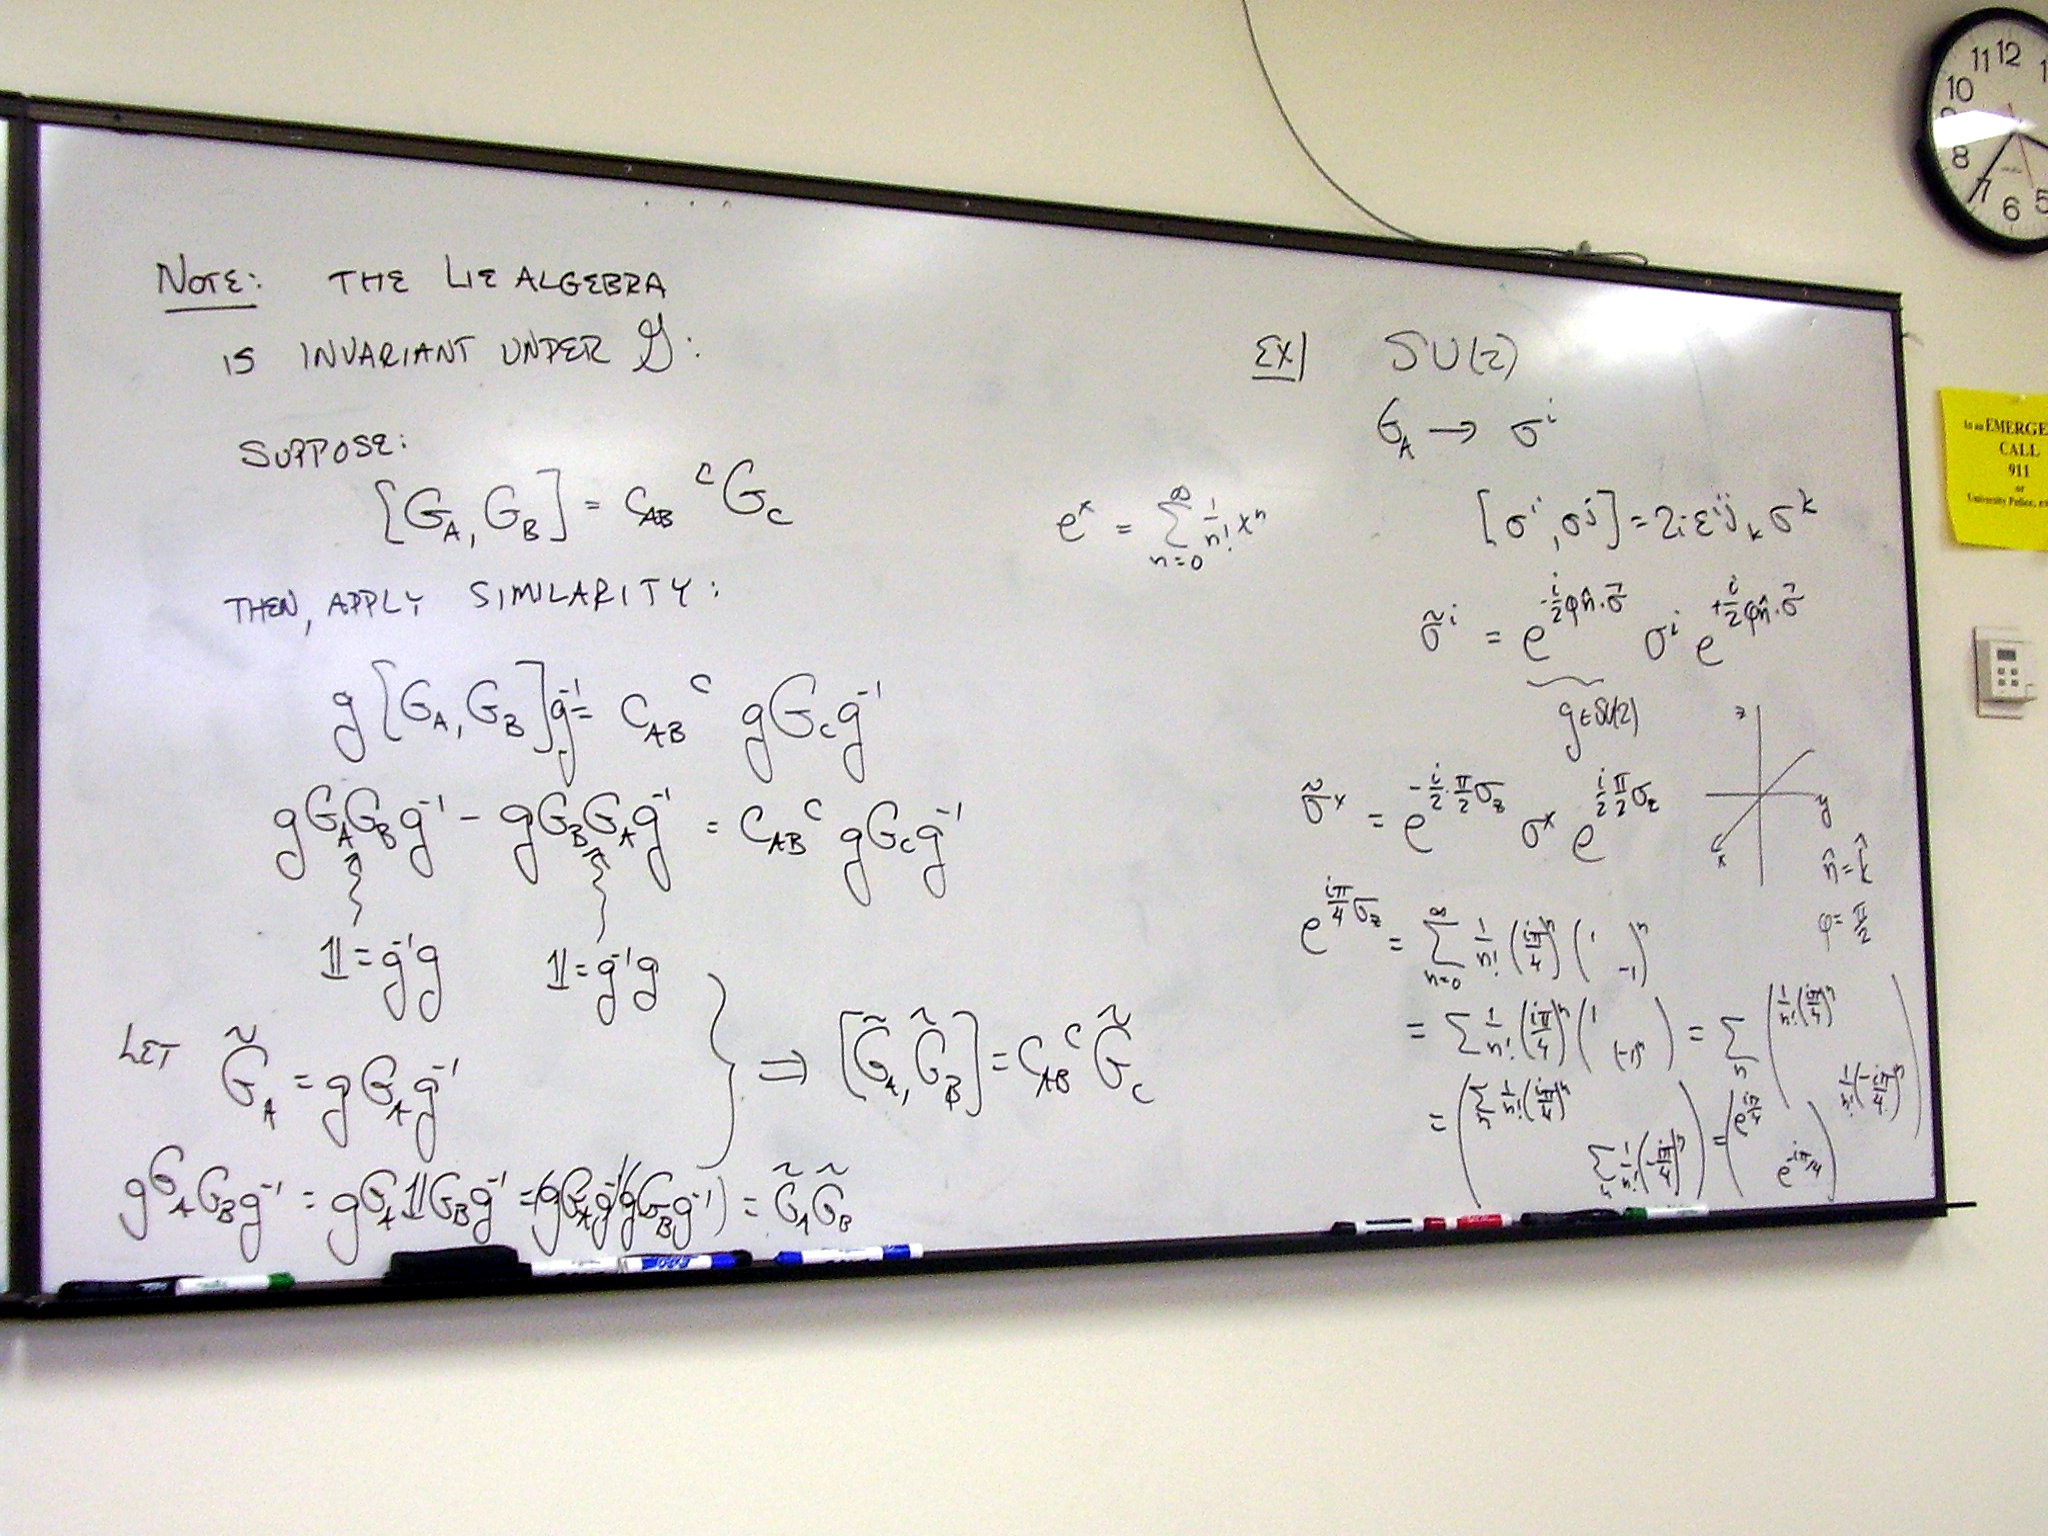 NOTE: THE LIE ALGEBRA
IS INVARIANT UNDER 𝒢:
SUPPOSE:
[G_A, G_B] = C_AB^C G_C
THEN, APPLY SIMILARITY:
g[G_A, G_B]g⁻¹ = C_AB^C g G_C g⁻¹
gG_A G_B g⁻¹ − gG_B G_A g⁻¹ = C_AB^C g G_C g⁻¹
𝟙 = g⁻¹g 𝟙 = g⁻¹g
LET G̃_A = g G_A g⁻¹
gG_A G_B g⁻¹ = gG_A 𝟙 G_B g⁻¹ = (gG_A g⁻¹)(gG_B g⁻¹) = G̃_A G̃_B
⇒ [G̃_A, G̃_B] = C_AB^C G̃_C
e^x = Σ_{n=0}^∞ 1/n! x^n
EX| SU(2)
G_A → σ^i
[σ^i, σ^j] = 2i ε^{ij}_k σ^k
σ̃^i = e^{-i/2 φ n̂·σ⃗} σ^i e^{+i/2 φ n̂·σ⃗}
g ∈ SU(2)
z
y
x
n̂ = k̂
φ = π/2
σ̃^x = e^{-i/2·π/2 σ_z} σ^x e^{i/2 π/2 σ_z}
e^{iπ/4 σ_z} = Σ_{n=0}^∞ 1/n! (iπ/4)^n (1 -1)^n
= Σ 1/n! (iπ/4)^n (1 (-1)^n) = Σ_n (1/n! (iπ/4)^n 1/n! (-iπ/4)^n)
= (Σ_n 1/n! (iπ/4)^n Σ_n 1/n! (-iπ/4)^n) = (e^{iπ/4} e^{-iπ/4})
11 12 1
10
9
8
7
6
5
In an EMERGE
CALL
911
or
University Police, e